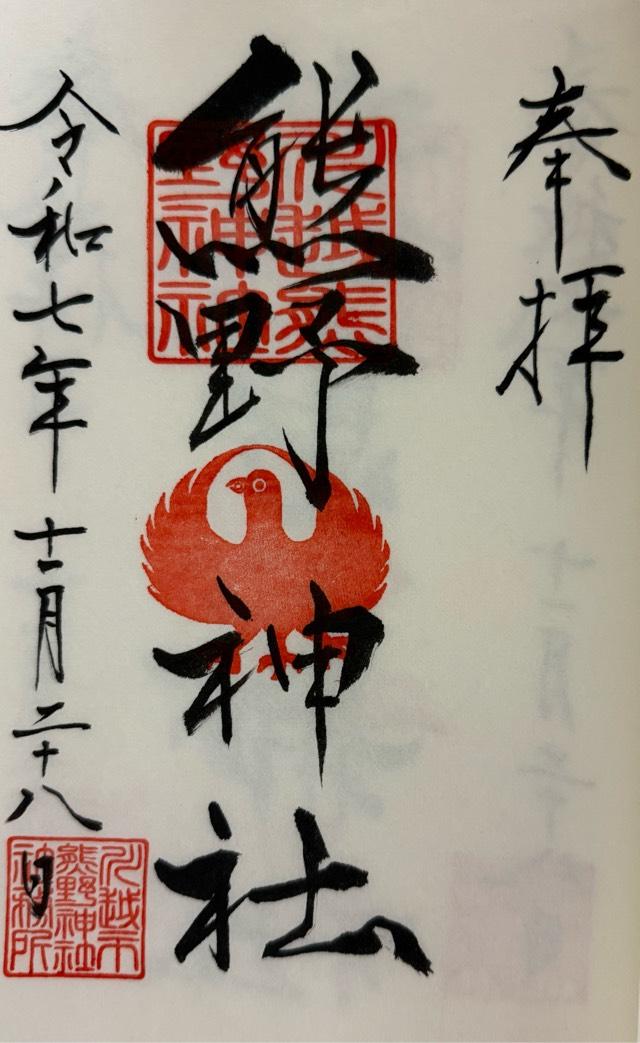 奉拝
熊野神社
川越熊野神社
令和七年十一月二十八日
川越市熊野神社社務所